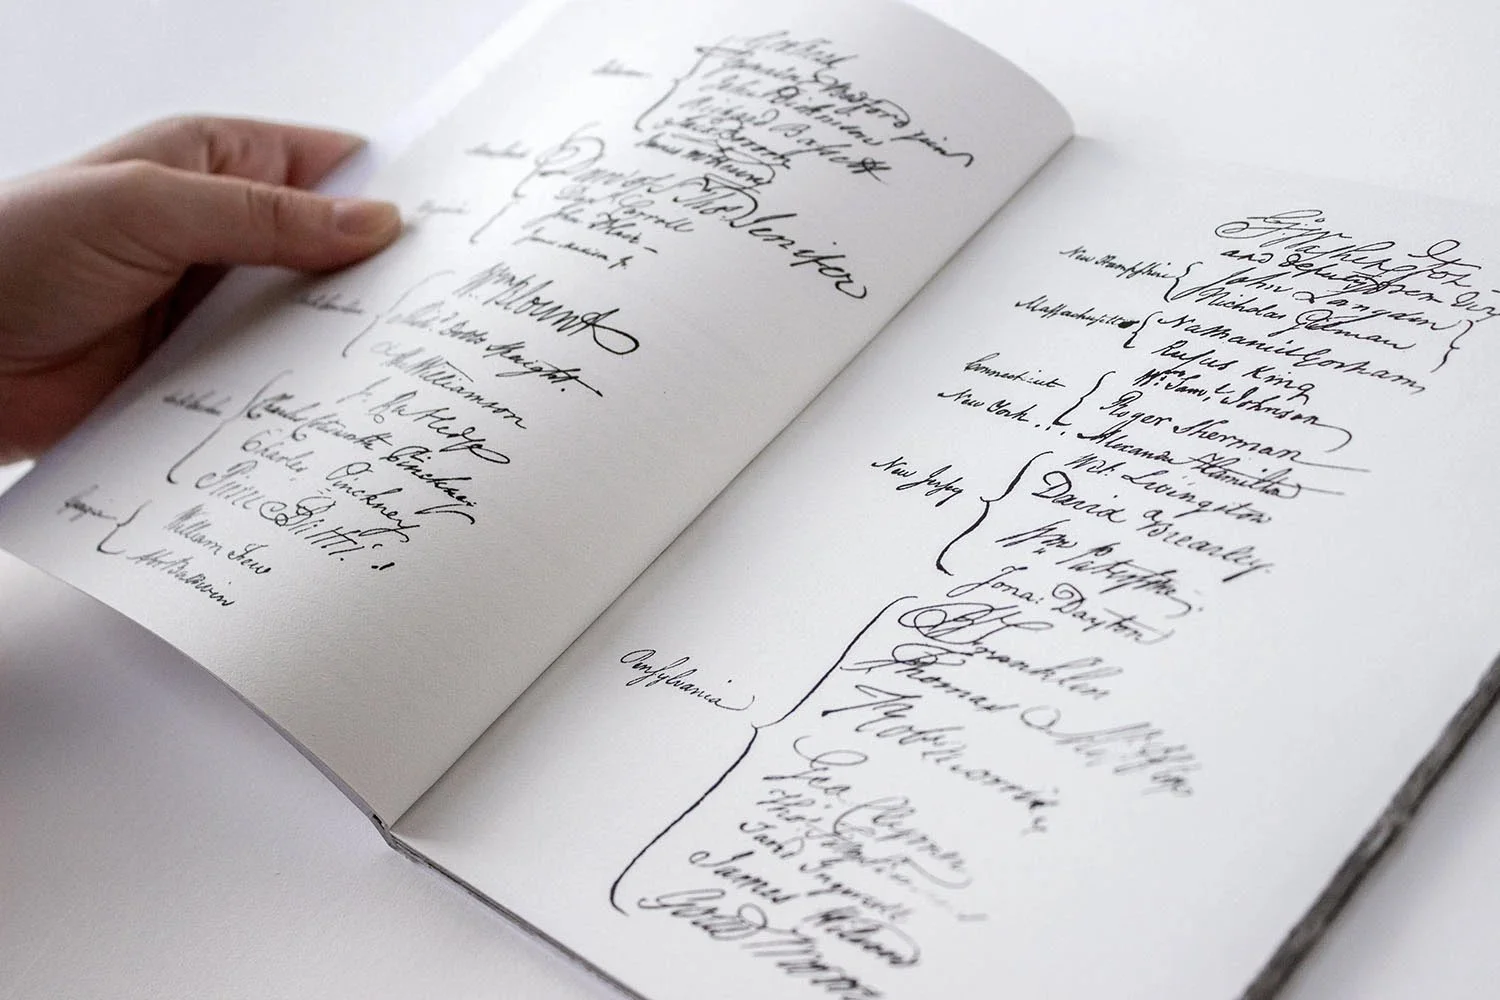 Geo Read
Gunning Bedford jun
John Dickinson
Richard Bassett
Jaco Broom
James McHenry
Dan of St Thos. Jenifer
Danl Carroll
Virginia
John Blair—
James Madison Jr.
Wm Blount
Richd Dobbs Spaight.
Hu Williamson
J. Rutledge
Charles Cotesworth Pinckney
Charles Pinckney
Pierce Butler.
Georgia
William Few
Abr Baldwin
Go: Washington
and deputy from
New Hampshire
John Langdon
Nicholas Gilman
Massachusetts
Nathaniel Gorham
Rufus King
Connecticut
Wm. Saml. Johnson
Roger Sherman
New York . . .
Alexander Hamilton
New Jersey
Wil: Livingston
David Brearley.
Wm Paterson.
Jona: Dayton
Pensylvania
B Franklin
Thomas Mifflin
Robt Morris
Geo. Clymer
Thos. FitzSimons
Jared Ingersoll
James Wilson
Gouv Morris